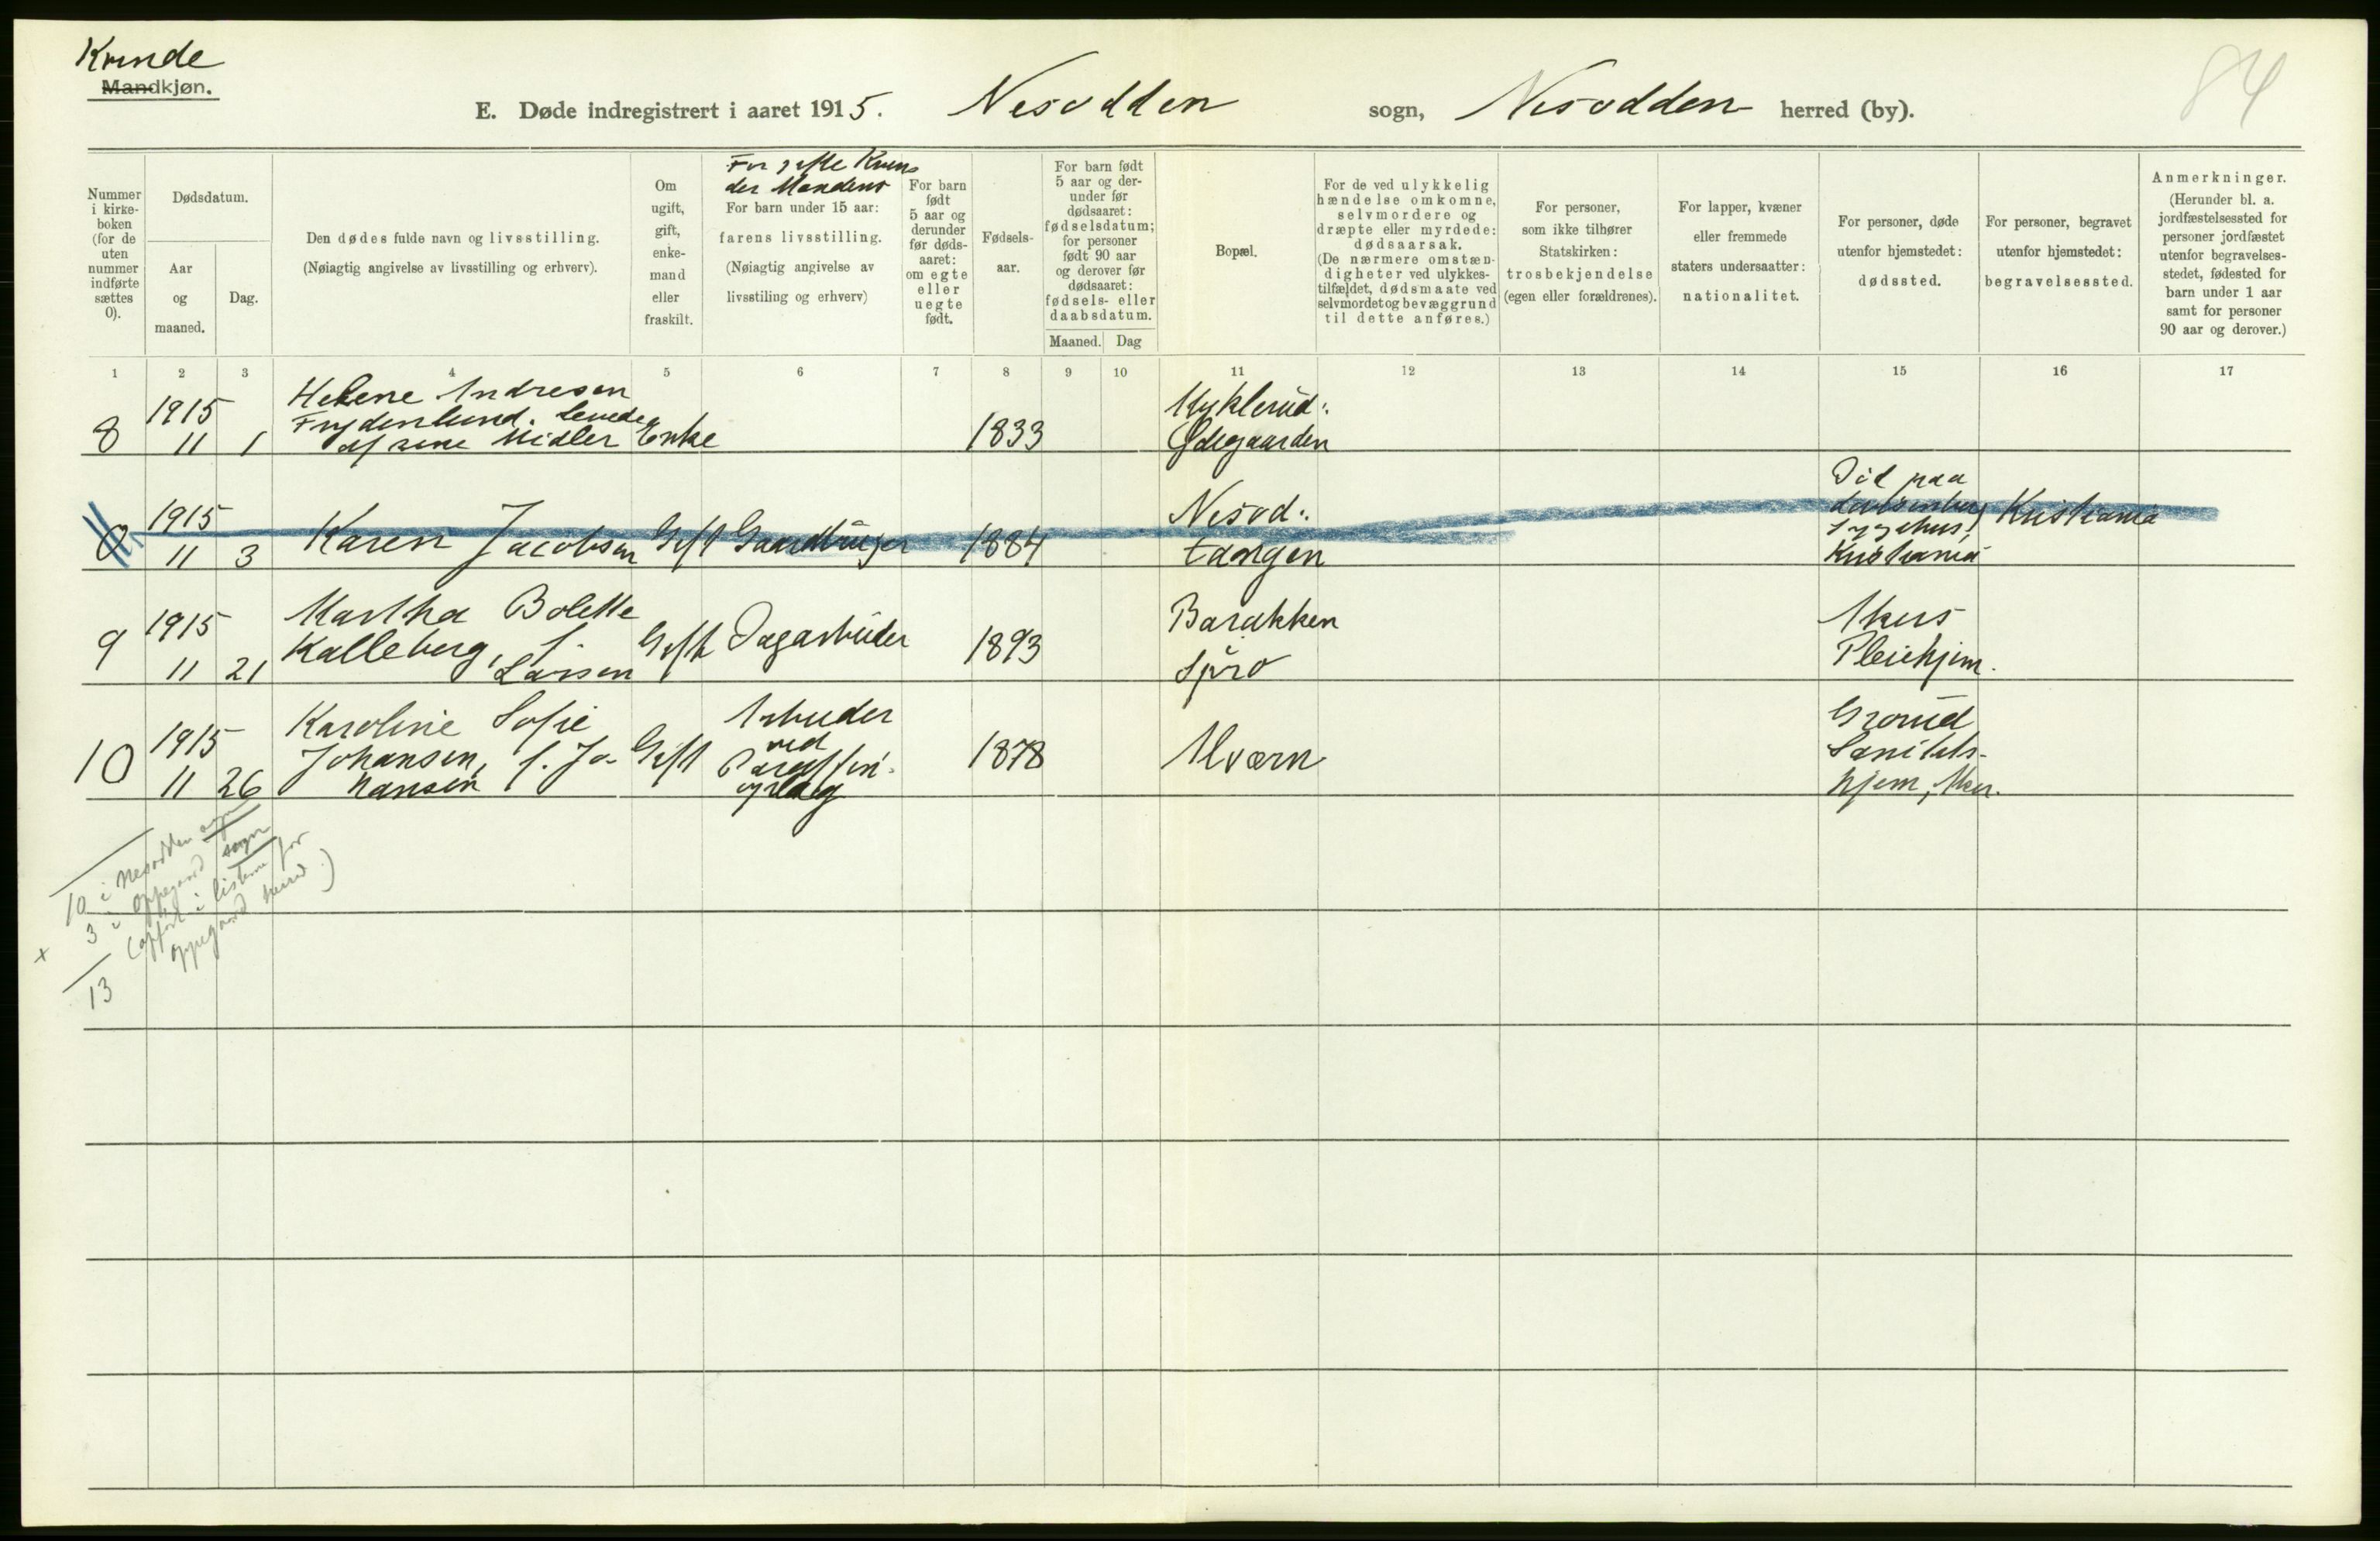 Kvinde
Mandkjøn.
84
E. Døde indregistrert i aaret 1915. Nesodden sogn, Nesodden herred (by).
Nummer i kirke-boken (for de uten nummer indførte sættes 0).
Dødsdatum.
Aar og maaned.
Dag.
Den dødes fulde navn og livsstilling.
(Nøiagtig angivelse av livsstilling og erhverv).
Om ugift, gift, enke-mand eller fraskilt.
For gifte Kvin
der Mandens
For barn under 15 aar:
farens livsstilling.
(Nøiagtig angivelse av
livsstiling og erhverv)
For barn født 5 aar og derunder før døds-aaret: om egte eller uegte født.
Fødsels-aar.
For barn født 5 aar og der-under før dødsaaret: fødselsdatum; for personer født 90 aar og derover før dødsaaret: fødsels- eller daabsdatum.
Maaned. Dag
Bopæl.
For de ved ulykkelig hændelse omkomne, selvmordere og dræpte eller myrdede: dødsaarsak. (De nærmere omstæn-digheter ved ulykkes-tilfældet, dødsmaate ved selvmordet og bevæggrund til dette anføres.)
For personer, som ikke tilhører Statskirken: trosbekjendelse (egen eller forældrenes).
For lapper, kvæner eller fremmede staters undersaatter: nationalitet.
For personer, døde utenfor hjemstedet: dødssted.
For personer, begravet utenfor hjemstedet: begravelsessted.
Anmerkninger. (Herunder bl. a. jordfæstelsessted for personer jordfæstet utenfor begravelses-stedet, fødested for barn under 1 aar samt for personer 90 aar og derover.)
1 2 3 4 5 6 7 8 9 10 11 12 13 14 15 16 17
8 1915 11 1 Helene Andresen
Frydenlund. levede
af sine Midler Enke 1833 Myklerud:
Ødegaarden
0 1915 11 3 Karen Jacobsen Gift Gaardbruger 1884 Nesod:
tangen
Død paa
Lovisenberg
Sygehus,
Kristiania
Kristiania
9 1915 11 21 Martha Bolette
Kalleberg, f.
Larsen Gift Dagarbeider 1893 Barakken
Spro
Akers
Pleiehjem.
10 1915 11 26 Karoline Sofie
Johansen, f. Jo-
hansen Gift Arbeider
ved
Paraffin-
oplag 1878 Alværn
Grorud
Sanitets-
hjem, Aker.
10 i Nesodden sogn
+ 3 i Oppegaard sogn
(opført i listerne for
Oppegaard herred)
13